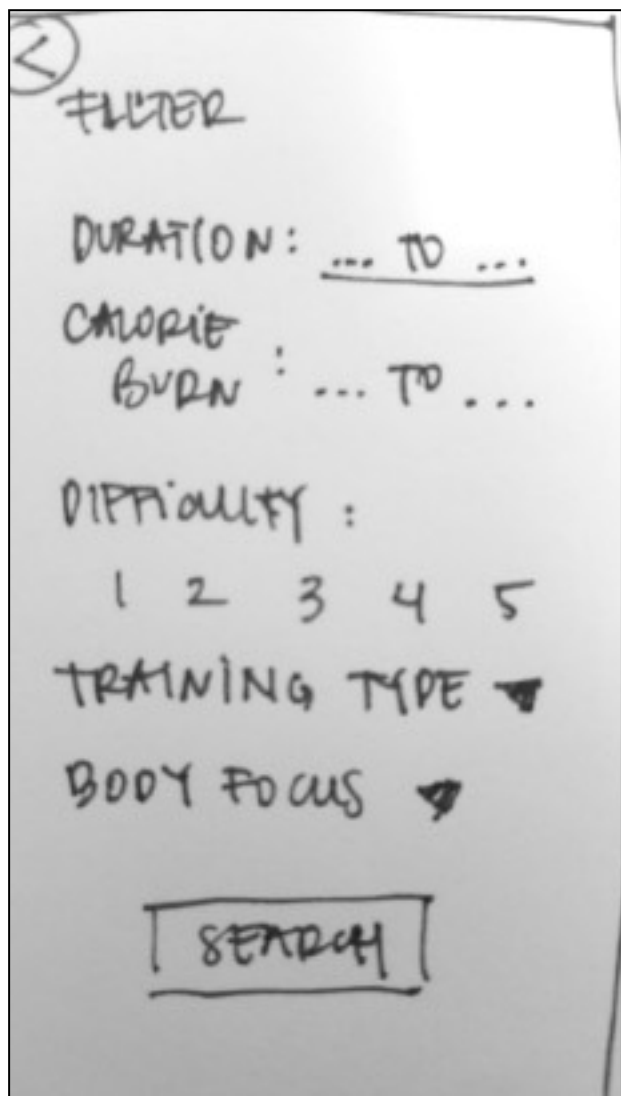 <
FILTER
DURATION: ... TO ...
CALORIE
BURN : ... TO ...
DIFFICULTY :
1 2 3 4 5
TRAINING TYPE ▼
BODY FOCUS ▼
SEARCH